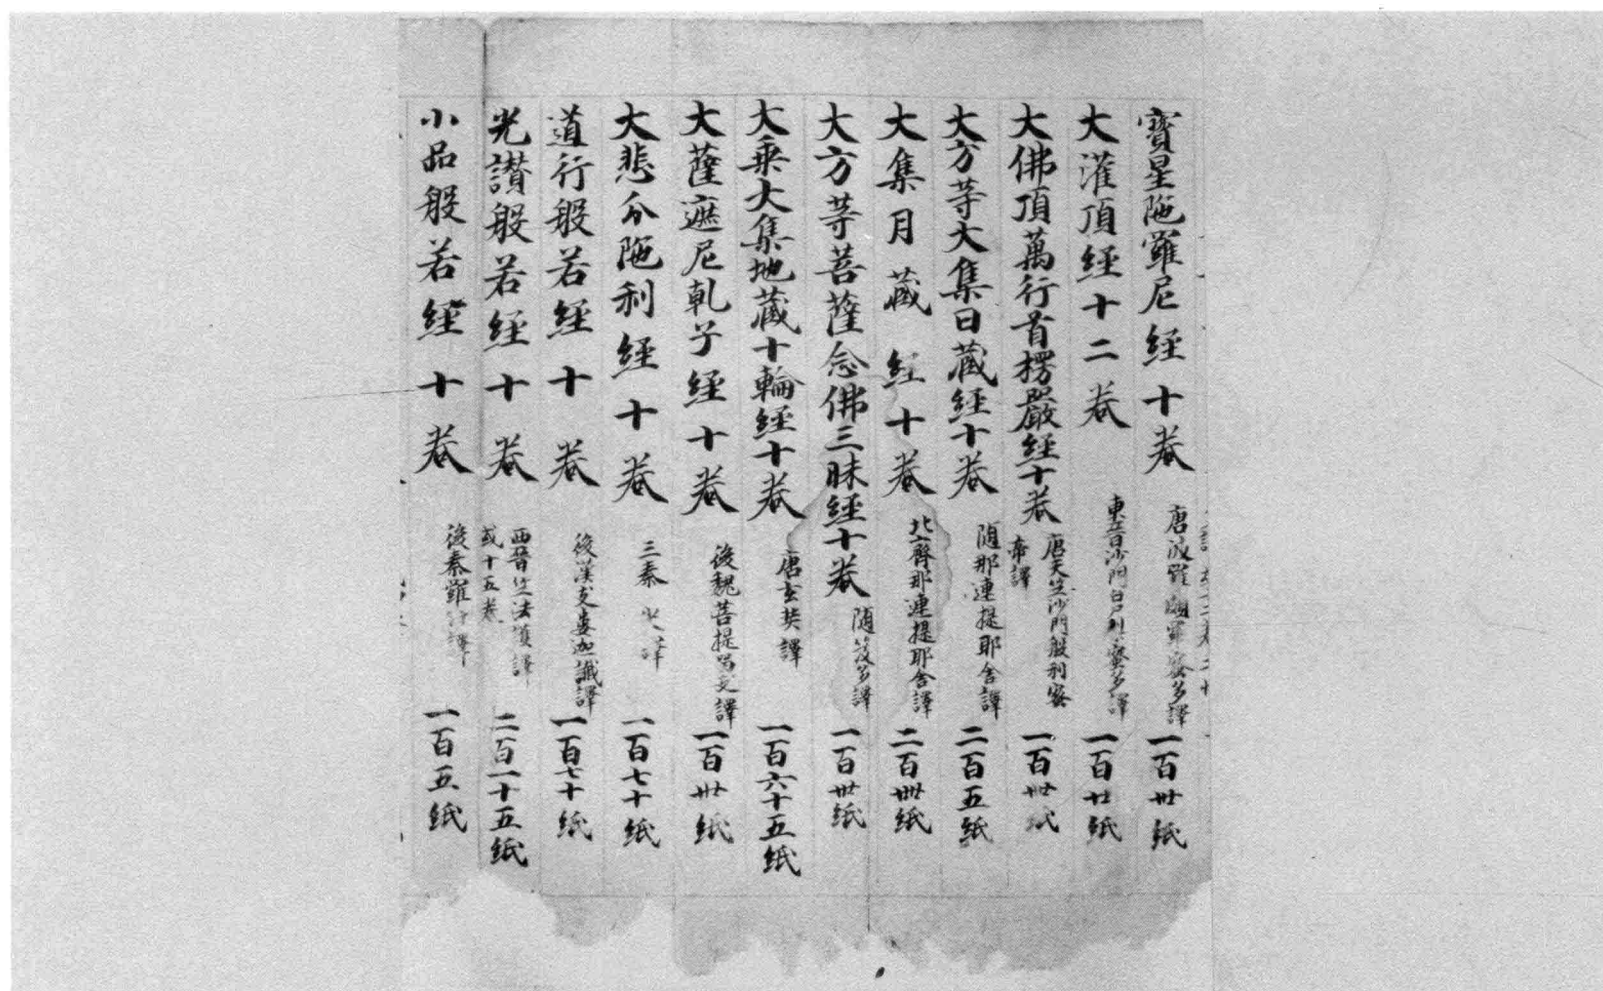 寶星陁羅尼經十卷 唐波羅頗羅蜜多譯 一百卅紙
大灌頂經十二卷 東晉沙門白尸利蜜多譯 一百廿紙
大佛頂萬行首楞嚴經十卷 唐天竺沙門般刺蜜帝譯 一百卅紙
大方等大集日藏經十卷 隨那連提耶舍譯 二百五紙
大集月藏經十卷 北齊那連提耶舍譯 二百卌紙
大方等菩薩念佛三昧經十卷 隨笈多譯 一百卅紙
大乗大集地藏十輪經十卷 唐玄奘譯 一百六十五紙
大薩遮尼乹子經十卷 後魏菩提留支譯 一百卅紙
大悲分陁利經十卷 三秦 譯 一百七十紙
道行般若經十卷 後漢支婁迦讖譯 一百七十紙
光讃般若經十卷 西晉竺法護譯 或十五卷 二百一十五紙
小品般若經十卷 後秦羅什譯 一百五紙